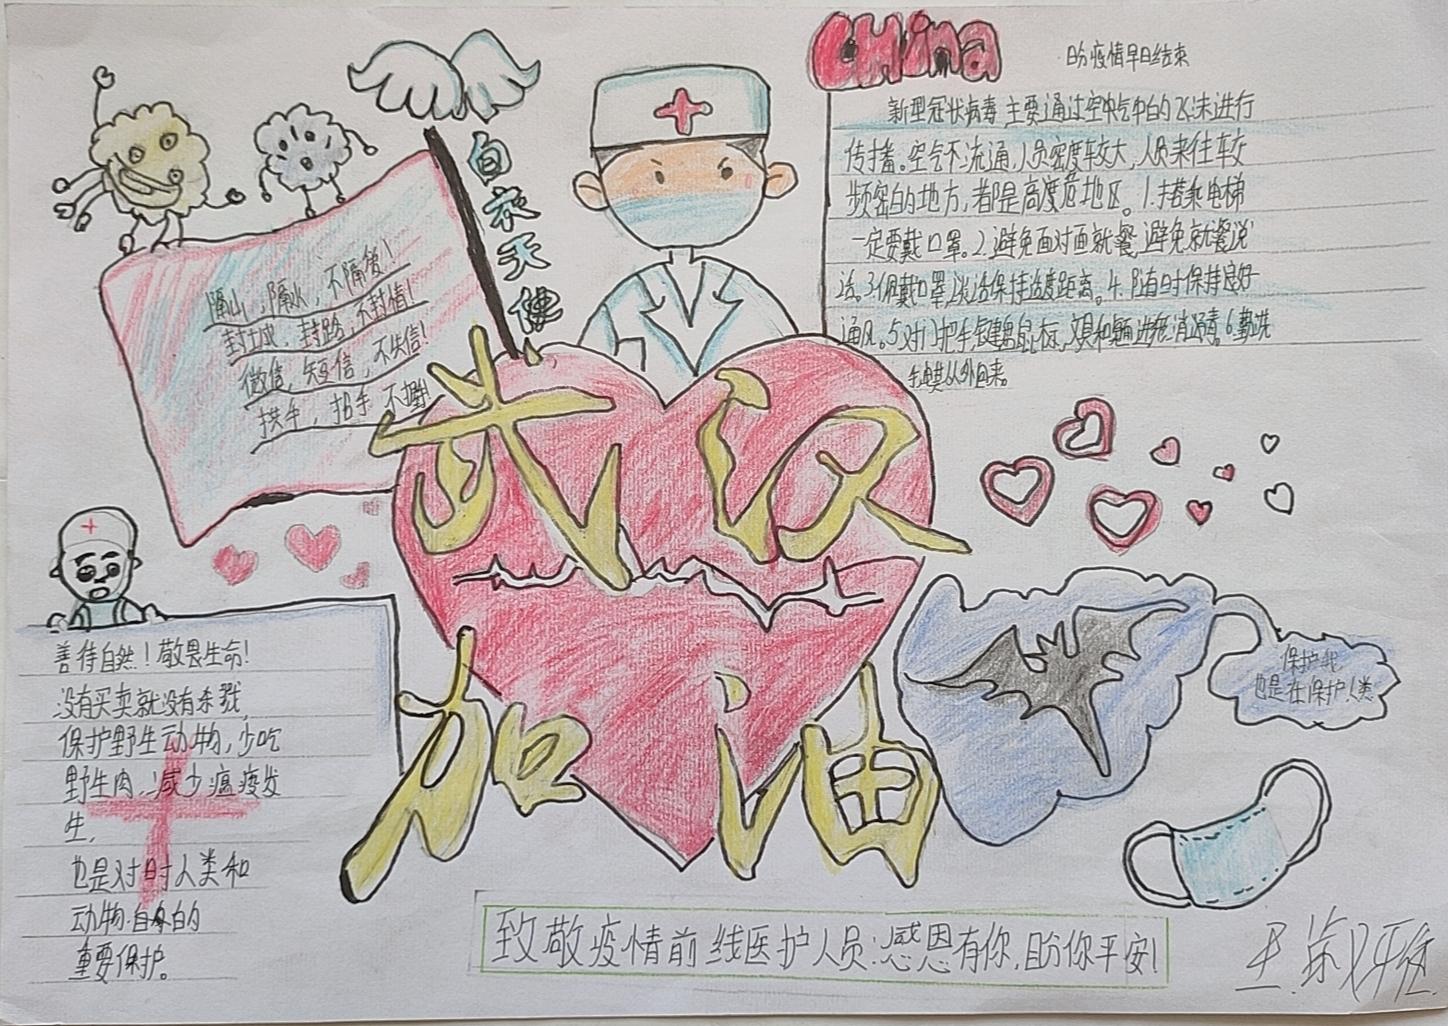 China
盼疫情早日结束
新型冠状病毒主要通过空中气中的飞沫进行
传播。空气不流通,人员密度较大,人员来往较
频密的地方,都是高度危地区。1.搭乘电梯
一定要戴口罩。2.避免面对面就餐避免就餐说
话。3.佩戴口罩谈话保持适度距离。4.随时保持良好
通风。5.对门把手键盘鼠标,文具和桌面进行消毒。6.勤洗
手尤其从外回来。
白衣天使
隔山,隔水,不隔爱!
封城,封路,不封情!
微信,短信,不失信!
拱手,招手,不握!
武汉
加油
善待自然!敬畏生命!
没有买卖就没有杀戮,
保护野生动物,少吃
野生肉,减少瘟疫发
生,
也是对时人类和
动物自身的
重要保护。
保护我
也是在保护人类
致敬疫情前线医护人员:感恩有你,盼你平安!